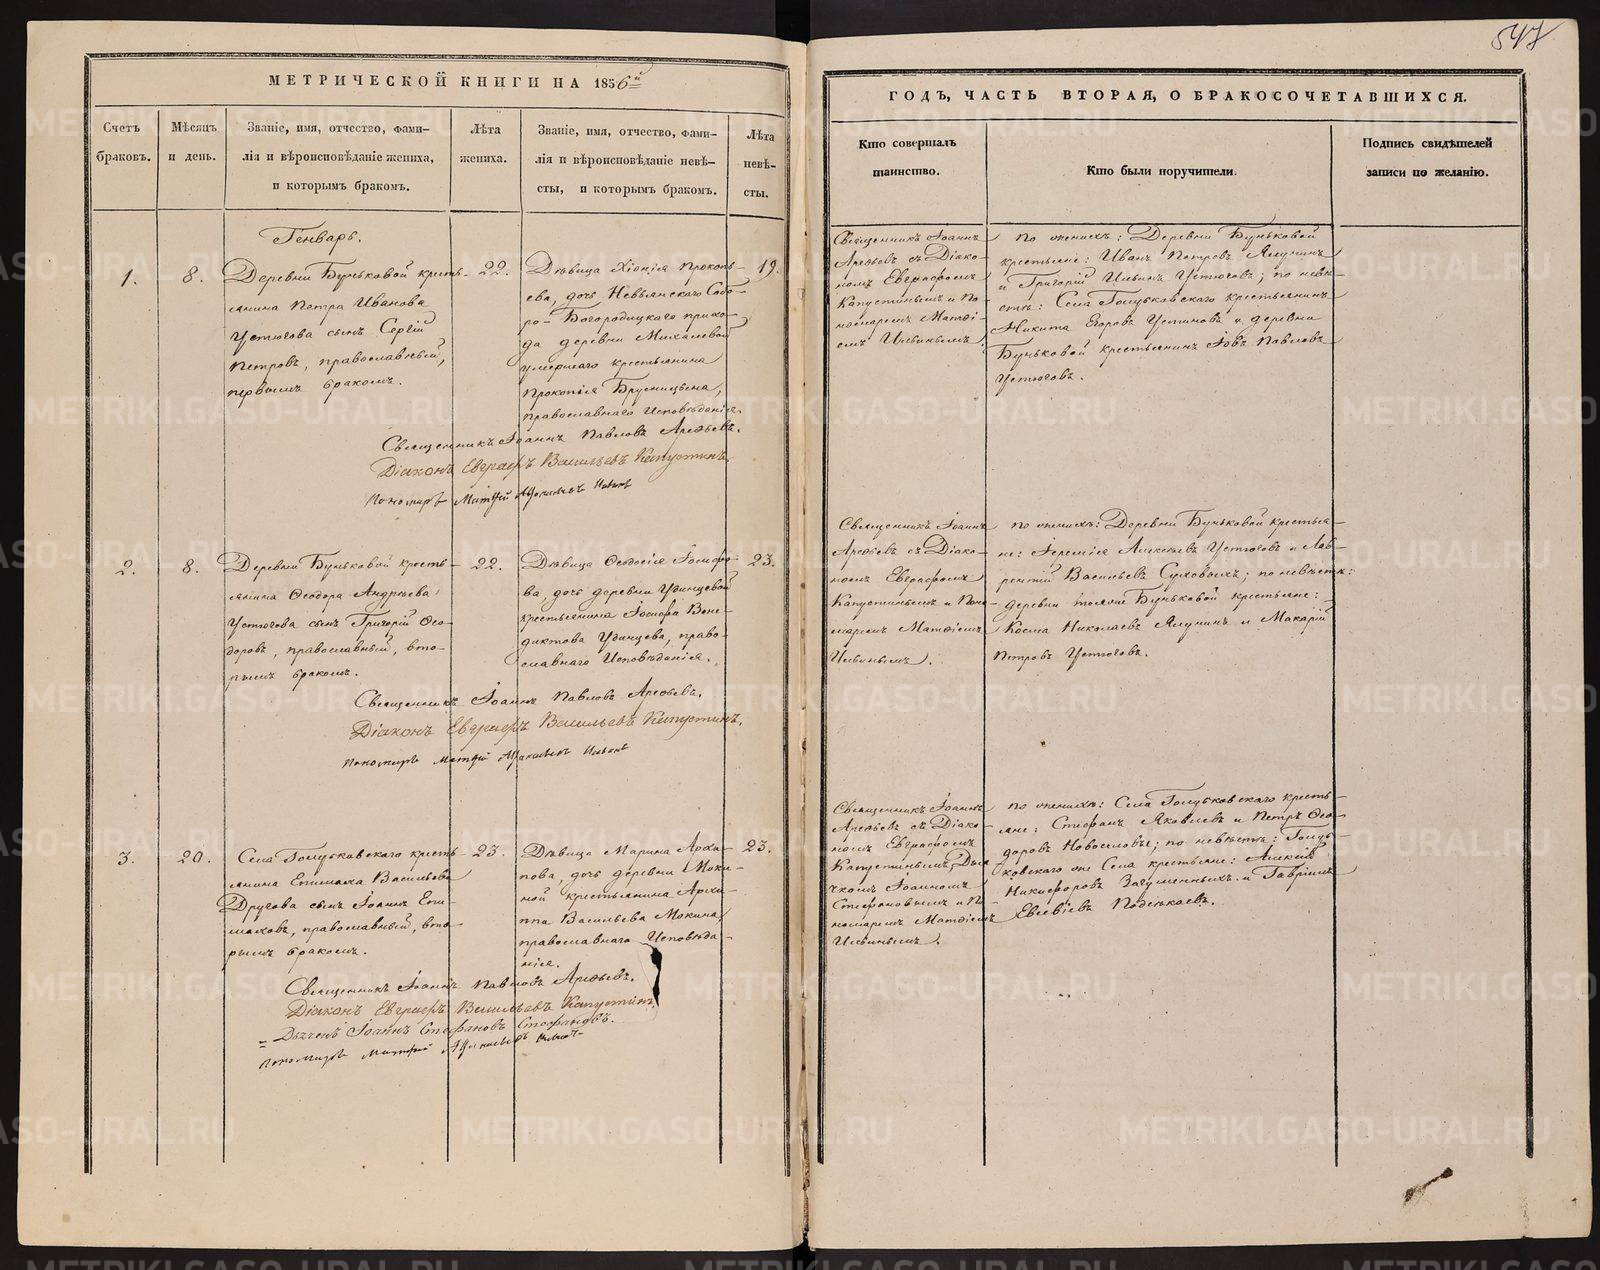 547
МЕТРИЧЕСКОЙ КНИГИ НА 1856й
Счетъ браковъ.
Мѣсяцъ и день.
Званіе, имя, отчество, фами-
лія и вѣроисповѣданіе жениха,
и которымъ бракомъ.
Лѣта жениха.
Званіе, имя, отчество, фами-
лія и вѣроисповѣданіе невѣ-
сты, и которымъ бракомъ.
Лѣта невѣ-
сты.
Генварь.
1.
8.
Деревни Буньковой кресть-
янина Петра Иванова
Устюгова сынъ Сергій
Петровъ, православный,
первымъ бракомъ.
22.
Дѣвица Хіонія Прокопь-
ева, дочь Невьянскаго Собо-
ро-Богородицкаго прихо-
да деревни Михалевой
умершаго крестьянина
Прокопія Брусницына,
православнаго Исповѣданія.
19.
Священникъ Іоаннъ Павловъ Арефьевъ.
Діаконъ Евграфъ Васильевъ Капустинъ.
Пономарь Матфій
2.
8.
Деревни Буньковой кресть-
янина Ѳеодора Андреева
Устюгова сынъ Григорій Ѳео-
доровъ, православный, вто-
рымъ бракомъ.
22.
Дѣвица Ѳеодосія Іосифо-
ва, дочь деревни Удинцевой
крестьянина Іосифа Вене-
диктова Удинцева, право-
славнаго Исповѣданія.
23.
Священникъ Іоаннъ Павловъ Арефьевъ.
Діаконъ Евграфъ Васильевъ Капустинъ.
Пономарь Матфій
3.
20.
Села Голубковскаго кресть-
янина Епимаха Васильева
Другова сынъ Іоаннъ Епи-
маховъ, православный, вто-
рымъ бракомъ.
23.
Дѣвица Марина Архи-
пова, дочь деревни Моки-
ной крестьянина Архи-
ппа Васильева Мокина,
православнаго Исповѣда-
нія.
23.
Священникъ Іоаннъ Павловъ Арефьевъ.
Діаконъ Евграфъ Васильевъ Капустинъ.
Дьячекъ Іоаннъ Стефановъ Стефановъ.
Пономарь Матфій
ГОДЪ, ЧАСТЬ ВТОРАЯ, О БРАКОСОЧЕТАВШИХСЯ.
Кто совершалъ
таинство.
Кто были поручители.
Подпись свидѣтелей
записи по желанію.
Священникъ Іоаннъ
Арефьевъ съ Діако-
номъ Евграфомъ
Капустинымъ и По-
номаремъ Матфі-
емъ Ильинымъ.
По женихѣ: Деревни Буньковой
крестьяне: Иванъ Петровъ Ялунинъ
и Григорій Ильинъ Устюговъ; по невѣ-
стѣ: Села Голубковскаго крестьянинъ
Никита Егоровъ Устиновъ и деревни
Буньковой крестьянинъ Іовъ Павловъ
Устюговъ.
Священникъ Іоаннъ
Арефьевъ съ Діако-
номъ Евграфомъ
Капустинымъ и Поно-
маремъ Матфіемъ
Ильинымъ.
По женихѣ: Деревни Буньковой крестья-
не: Іеремія Алексѣевъ Устюговъ и Лав-
рентій Васильевъ Суховыхъ; по невѣстѣ:
деревни тояже Буньковой крестьяне:
Косма Николаевъ Ялунинъ и Макарій
Петровъ Устюговъ.
Священникъ Іоаннъ
Арефьевъ съ Діако-
номъ Евграфомъ
Капустинымъ, Дья-
чкомъ Іоанномъ
Стефановымъ и По-
номаремъ Матфіемъ
Ильинымъ.
По женихѣ: Села Голубковскаго кресть-
яне: Стефанъ Яковлевъ и Петръ Ѳео-
доровъ Новоселовы; по невѣстѣ: Голуб-
ковскаго же Села крестьяне: Алексій
Никифоровъ Загуменныхъ и Гавріилъ
Евсевіевъ
METRIKI.GASO-URAL.RU